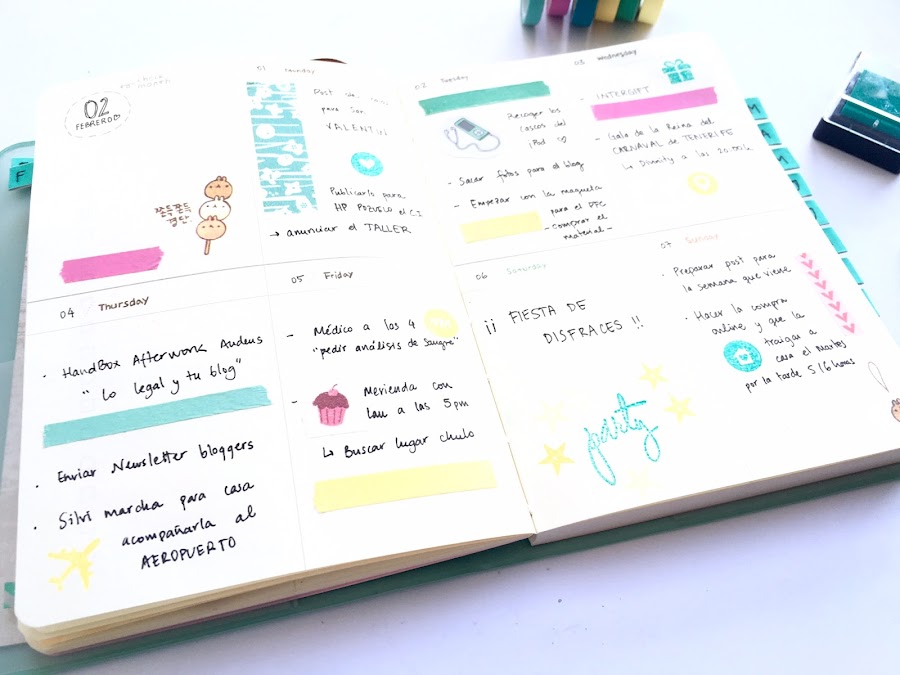 02
FEBRERO
쫀득쫀득
F
01 Monday
Post
para
VALENTIN
Publicarlo para
HP POZUELO el
→ anunciar el TALLER
02 Tuesday
Recoger los
cascos del
iPod ♡
- Sacar fotos para el blog
- Empezar con la maqueta
para el DFC
- comprar el
material -
03 Wednesday
- INTERGIFT
- Gala de la Reina del
CARNAVAL de TENERIFE
a las
04 Thursday
· HandBox Afterwork Audens
"lo legal y tu blog"
· Enviar Newsletter bloggers
· Silvi marcha para casa
acompañarla al
AEROPUERTO
05 Friday
- Médico a las 4
"pedir análisis de sangre"
- Merienda con
Lau a las 5 pm
↳ Buscar lugar chulo
06 Saturday
¡¡ FIESTA DE
DISFRACES !!
party
07 Sunday
· Preparar post para
la semana que viene
· Hacer la compra
online y que la
traigan a
casa el martes
por la tarde 5/6 horas
M
A
M